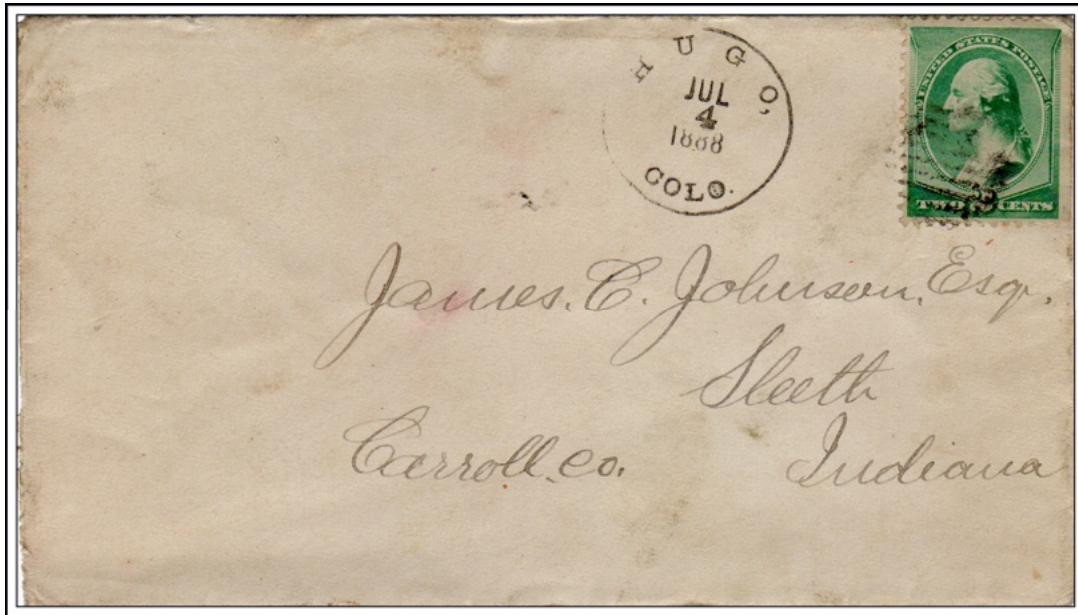 HUGO,
JUL
4
1888
COLO.
UNITED STATES POSTAGE
TWO 2 CENTS
James. C. Johnson, Esqr.
Sleeth
Carroll. co. Indiana